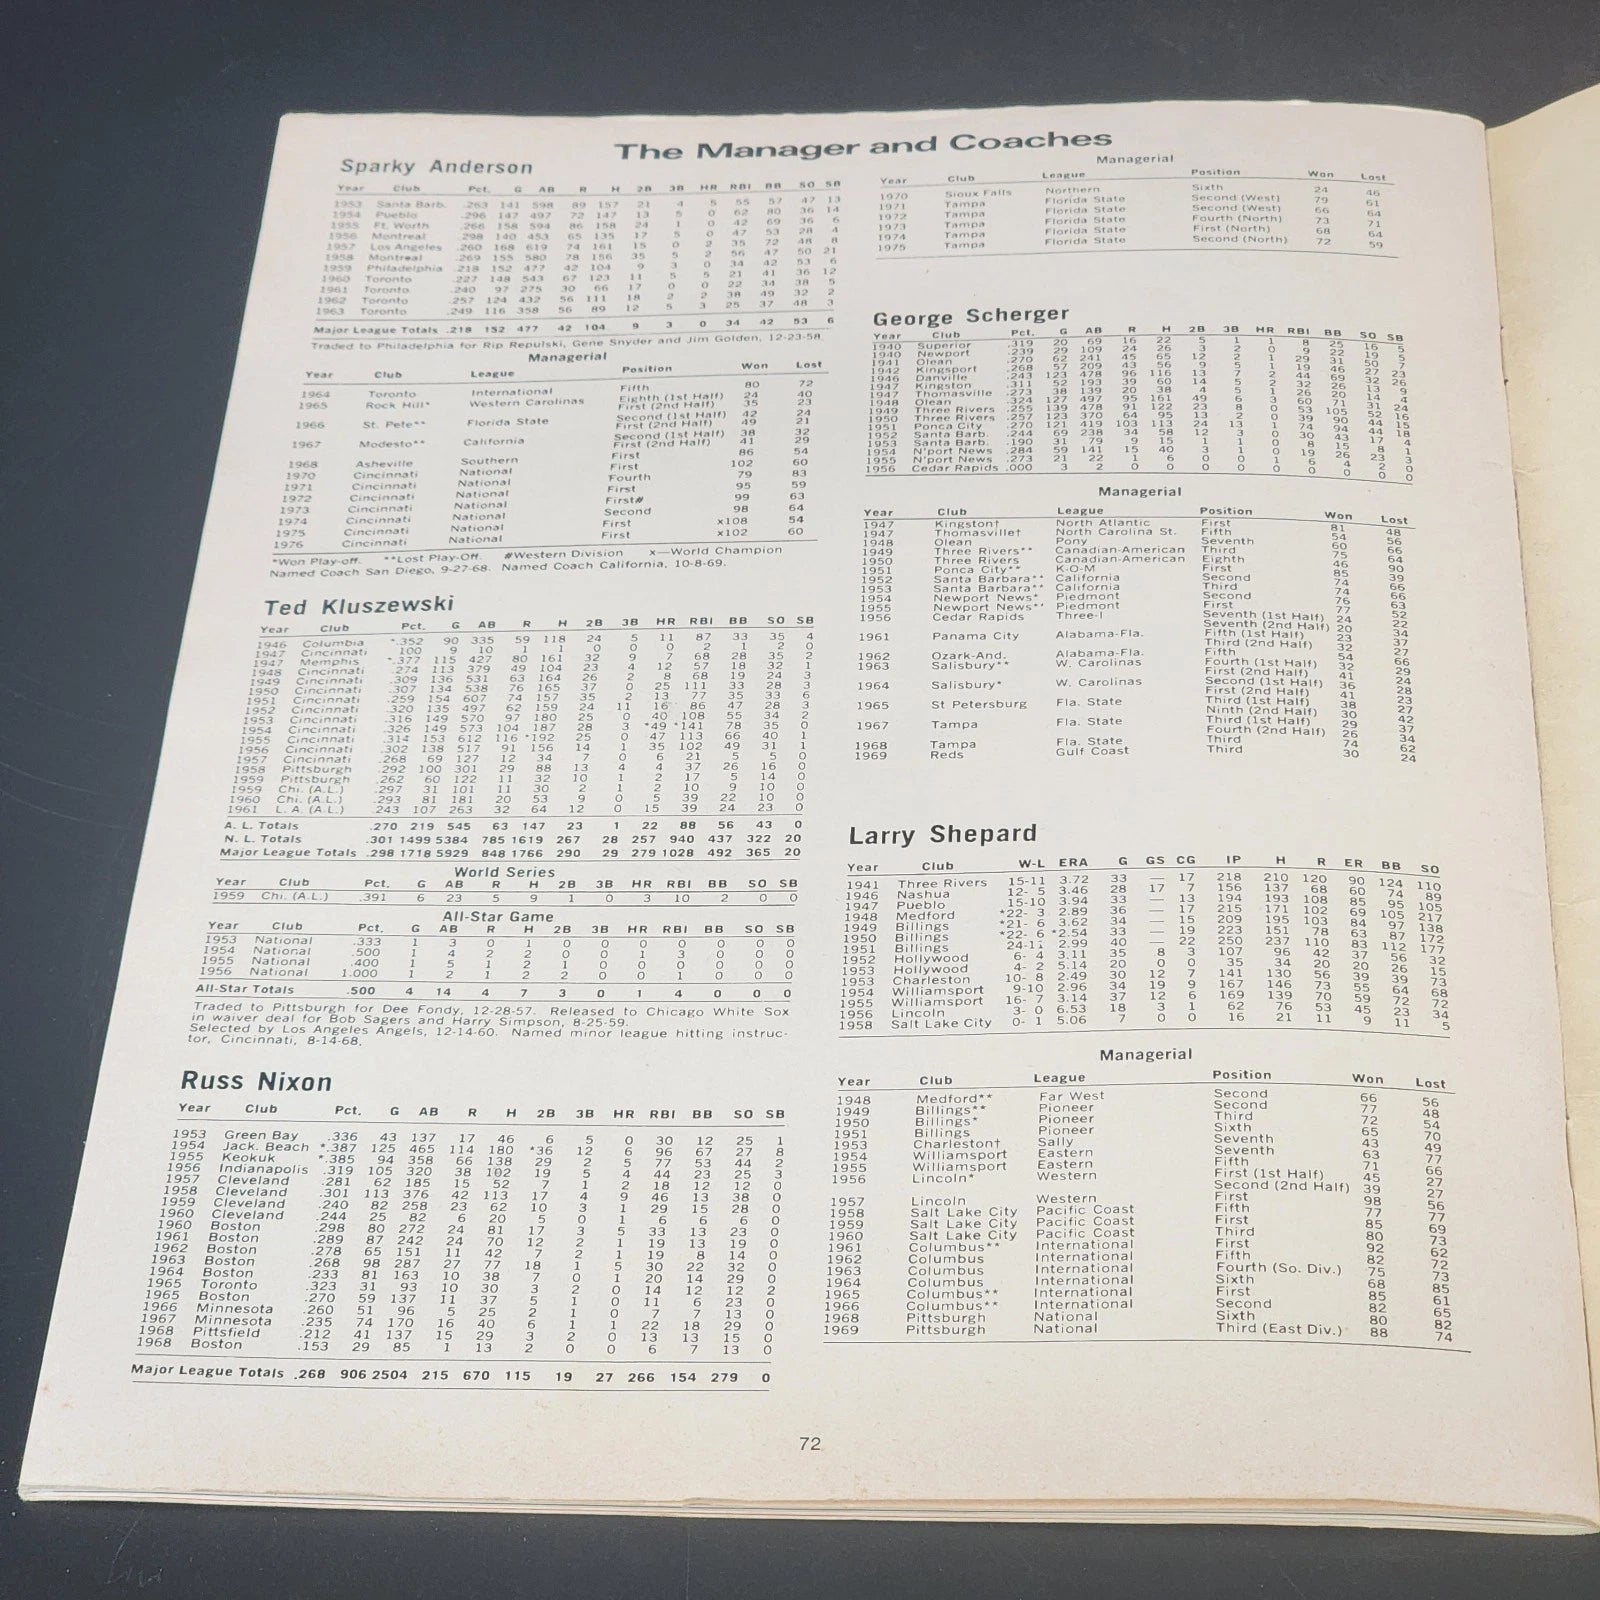 The Manager and Coaches
Sparky Anderson
Year Club Pct. G AB R H 2B 3B HR RBI BB SO SB
1953 Santa Barb. .263 141 598 89 157 21 4 5 55 57 47 13
1954 Pueblo .296 147 497 72 147 13 5 0 62 80 36 14
1955 Ft. Worth .266 158 594 86 158 24 1 0 42 69 36 6
1956 Montreal .298 140 453 65 135 17 5 0 47 53 28 4
1957 Los Angeles .260 168 619 74 161 15 0 2 35 72 48 8
1958 Montreal .269 155 580 78 156 35 5 2 56 47 50 21
1959 Philadelphia .218 152 477 42 104 9 3 0 34 42 53 6
1960 Toronto .227 148 543 67 123 11 5 5 21 41 36 12
1961 Toronto .240 97 275 30 66 17 0 0 22 34 38 5
1962 Toronto .257 124 432 56 111 18 2 2 38 49 32 2
1963 Toronto .249 116 358 56 89 12 5 3 25 37 48 3
Major League Totals .218 152 477 42 104 9 3 0 34 42 53 6
Traded to Philadelphia for Rip Repulski, Gene Snyder and Jim Golden, 12-23-58
Managerial
Year Club League Position Won Lost
1964 Toronto International Fifth 80 72
1965 Rock Hill* Western Carolinas Eighth (1st Half) 24 40
First (2nd Half) 35 23
1966 St. Pete** Florida State Second (1st Half) 42 24
First (2nd Half) 49 21
1967 Modesto** California Second (1st Half) 38 32
First (2nd Half) 41 29
1968 Asheville Southern First 86 54
1970 Cincinnati National First 102 60
1971 Cincinnati National Fourth 79 83
1972 Cincinnati National First 95 59
1973 Cincinnati National First# 99 63
1974 Cincinnati National Second 98 64
1975 Cincinnati National First x108 54
1976 Cincinnati National First x102 60
*Won Play-off. **Lost Play-Off. #Western Division x—World Champion
Named Coach San Diego, 9-27-68. Named Coach California, 10-8-69.
Ted Kluszewski
Year Club Pct. G AB R H 2B 3B HR RBI BB SO SB
1946 Columbia *.352 90 335 59 118 24 5 11 87 33 35 4
1947 Cincinnati .100 9 10 1 1 0 0 0 2 1 2 0
1947 Memphis *.377 115 427 80 161 32 9 7 68 28 35 2
1948 Cincinnati .274 113 379 49 104 23 4 12 57 18 32 1
1949 Cincinnati .309 136 531 63 164 26 2 8 68 19 24 3
1950 Cincinnati .307 134 538 76 165 37 0 25 111 33 28 3
1951 Cincinnati .259 154 607 74 157 35 2 13 77 35 33 6
1952 Cincinnati .320 135 497 62 159 24 11 16 86 47 28 3
1953 Cincinnati .316 149 570 97 180 25 0 40 108 55 34 2
1954 Cincinnati .326 149 573 104 187 28 3 *49 *141 78 35 0
1955 Cincinnati .314 153 612 116 *192 25 0 47 113 66 40 1
1956 Cincinnati .302 138 517 91 156 14 1 35 102 49 31 1
1957 Cincinnati .268 69 127 12 34 7 0 6 21 5 5 0
1958 Pittsburgh .292 100 301 29 88 13 4 4 37 26 16 0
1959 Pittsburgh .262 60 122 11 32 10 1 2 17 5 14 0
1959 Chi. (A.L.) .297 31 101 11 30 2 1 2 10 9 10 0
1960 Chi. (A.L.) .293 81 181 20 53 9 0 5 39 22 10 0
1961 L. A. (A.L.) .243 107 263 32 64 12 0 15 39 24 23 0
A. L. Totals .270 219 545 63 147 23 1 22 88 56 43 0
N. L. Totals .301 1499 5384 785 1619 267 28 257 940 437 322 20
Major League Totals .298 1718 5929 848 1766 290 29 279 1028 492 365 20
World Series
Year Club Pct. G AB R H 2B 3B HR RBI BB SO SB
1959 Chi. (A.L.) .391 6 23 5 9 1 0 3 10 2 0 0
All-Star Game
Year Club Pct. G AB R H 2B 3B HR RBI BB SO SB
1953 National .333 1 3 0 1 0 0 0 0 0 0 0
1954 National .500 1 4 2 2 0 0 1 3 0 0 0
1955 National .400 1 5 1 2 1 0 0 0 0 0 0
1956 National 1.000 1 2 1 2 2 0 0 1 0 0 0
All-Star Totals .500 4 14 4 7 3 0 1 4 0 0 0
Traded to Pittsburgh for Dee Fondy, 12-28-57. Released to Chicago White Sox
in waiver deal for Bob Sagers and Harry Simpson, 8-25-59.
Selected by Los Angeles Angels, 12-14-60. Named minor league hitting instruc-
tor, Cincinnati, 8-14-68.
Russ Nixon
Year Club Pct. G AB R H 2B 3B HR RBI BB SO SB
1953 Green Bay .336 43 137 17 46 6 5 0 30 12 25 1
1954 Jack. Beach *.387 125 465 114 180 *36 12 6 96 67 27 8
1955 Keokuk *.385 94 358 66 138 29 2 5 77 53 44 2
1956 Indianapolis .319 105 320 38 102 19 5 4 44 23 25 3
1957 Cleveland .281 62 185 15 52 7 1 2 18 12 12 0
1958 Cleveland .301 113 376 42 113 17 4 9 46 13 38 0
1959 Cleveland .240 82 258 23 62 10 3 1 29 15 28 0
1960 Cleveland .244 25 82 6 20 5 0 1 6 6 6 0
1960 Boston .298 80 272 24 81 17 3 5 33 13 23 0
1961 Boston .289 87 242 24 70 12 2 1 19 13 19 0
1962 Boston .278 65 151 11 42 7 2 1 19 8 14 0
1963 Boston .268 98 287 27 77 18 1 5 30 22 32 0
1964 Boston .233 81 163 10 38 7 0 1 20 14 29 0
1965 Toronto .323 31 93 10 30 3 2 0 14 12 12 2
1965 Boston .270 59 137 11 37 5 1 0 11 6 23 0
1966 Minnesota .260 51 96 5 25 2 1 0 7 7 13 0
1967 Minnesota .235 74 170 16 40 6 1 1 22 18 29 0
1968 Pittsfield .212 41 137 15 29 3 2 0 13 13 15 0
1968 Boston .153 29 85 1 13 2 0 0 6 7 13 0
Major League Totals .268 906 2504 215 670 115 19 27 266 154 279 0
Managerial
Year Club League Position Won Lost
1970 Sioux Falls Northern Sixth 24 46
1971 Tampa Florida State Second (West) 79 61
1972 Tampa Florida State Second (West) 66 64
1973 Tampa Florida State Fourth (North) 73 71
1974 Tampa Florida State First (North) 68 64
1975 Tampa Florida State Second (North) 72 59
George Scherger
Year Club Pct. G AB R H 2B 3B HR RBI BB SO SB
1940 Superior .319 20 69 16 22 5 1 1 8 25 16 5
1940 Newport .239 29 109 24 26 3 2 0 9 22 19 5
1941 Olean .270 62 241 45 65 12 2 1 29 31 50 7
1942 Kingsport .268 57 209 43 56 9 5 1 19 46 27 23
1946 Danville .243 123 478 96 116 13 7 2 44 69 32 26
1947 Kingston .311 52 193 39 60 14 5 2 32 26 13 9
1947 Thomasville .273 38 139 20 38 4 5 1 26 20 14 4
1948 Olean .324 127 497 95 161 49 6 3 60 71 31 24
1949 Three Rivers .255 139 478 91 122 23 8 0 53 105 52 16
1950 Three Rivers .257 123 370 64 95 13 2 0 39 90 44 15
1951 Ponca City .270 121 419 103 113 24 13 1 74 94 44 18
1952 Santa Barb. .244 69 238 34 58 12 3 0 30 43 17 4
1953 Santa Barb. .190 31 79 9 15 1 1 0 8 15 8 1
1954 N'port News .284 59 141 15 40 3 1 0 19 26 23 3
1955 N'port News .273 21 22 1 6 0 0 1 6 4 2 0
1956 Cedar Rapids .000 3 2 0 0 0 0 0 0 0 0 0
Managerial
Year Club League Position Won Lost
1947 Kingston† North Atlantic First 81 48
1947 Thomasville† North Carolina St. Fifth 54 56
1948 Olean Pony Seventh 60 66
1949 Three Rivers** Canadian-American Third 75 64
1950 Three Rivers Canadian-American Eighth 46 90
1951 Ponca City** K-O-M First 85 39
1952 Santa Barbara** California Second 74 66
1953 Santa Barbara** California Third 74 66
1954 Newport News* Piedmont Second 76 63
1955 Newport News** Piedmont First 77 52
1956 Cedar Rapids Three-I Seventh (1st Half) 24 22
Seventh (2nd Half) 20 34
1961 Panama City Alabama-Fla. Fifth (1st Half) 23 37
Third (2nd Half) 32 27
1962 Ozark-And. Alabama-Fla. Fifth 54 66
1963 Salisbury** W. Carolinas Fourth (1st Half) 32 29
First (2nd Half) 41 24
1964 Salisbury* W. Carolinas Second (1st Half) 36 28
First (2nd Half) 41 23
1965 St Petersburg Fla. State Third (1st Half) 38 27
Ninth (2nd Half) 30 42
1967 Tampa Fla. State Third (1st Half) 29 37
Fourth (2nd Half) 26 34
1968 Tampa Fla. State Third 74 62
1969 Reds Gulf Coast Third 30 24
Larry Shepard
Year Club W-L ERA G GS CG IP H R ER BB SO
1941 Three Rivers 15-11 3.72 33 — 17 218 210 120 90 124 110
1946 Nashua 12- 5 3.46 28 17 7 156 137 68 60 74 89
1947 Pueblo 15-10 3.94 33 — 13 194 193 108 85 95 105
1948 Medford *22- 3 2.89 36 — 17 215 171 102 69 105 217
1949 Billings *21- 6 3.62 34 — 15 209 195 103 84 97 138
1950 Billings *22- 6 *2.54 33 — 19 223 151 78 63 87 172
1951 Billings 24-11 2.99 40 — 22 250 237 110 83 112 177
1952 Hollywood 6- 4 3.11 35 8 3 107 96 42 37 56 32
1953 Hollywood 4- 2 5.14 20 0 0 35 34 20 20 26 15
1953 Charleston 10- 8 2.49 30 12 7 141 130 56 39 39 73
1954 Williamsport 9-10 2.96 34 19 9 167 146 73 55 64 68
1955 Williamsport 16- 7 3.14 37 12 6 169 139 70 59 72 72
1956 Lincoln 3- 0 6.53 18 3 1 62 76 53 45 23 34
1958 Salt Lake City 0- 1 5.06 7 0 0 16 21 11 9 11 5
Managerial
Year Club League Position Won Lost
1948 Medford** Far West Second 66 56
1949 Billings** Pioneer Second 77 48
1950 Billings* Pioneer Third 72 54
1951 Billings Pioneer Sixth 65 70
1953 Charleston† Sally Seventh 43 49
1954 Williamsport Eastern Seventh 63 77
1955 Williamsport Eastern Fifth 71 66
1956 Lincoln* Western First (1st Half) 45 27
Second (2nd Half) 39 27
1957 Lincoln Western First 98 56
1958 Salt Lake City Pacific Coast Fifth 77 77
1959 Salt Lake City Pacific Coast First 85 69
1960 Salt Lake City Pacific Coast Third 80 73
1961 Columbus** International First 92 62
1962 Columbus International Fifth 82 72
1963 Columbus International Fourth (So. Div.) 75 73
1964 Columbus International Sixth 68 85
1965 Columbus** International First 85 61
1966 Columbus** International Second 82 65
1968 Pittsburgh National Sixth 80 82
1969 Pittsburgh National Third (East Div.) 88 74
72